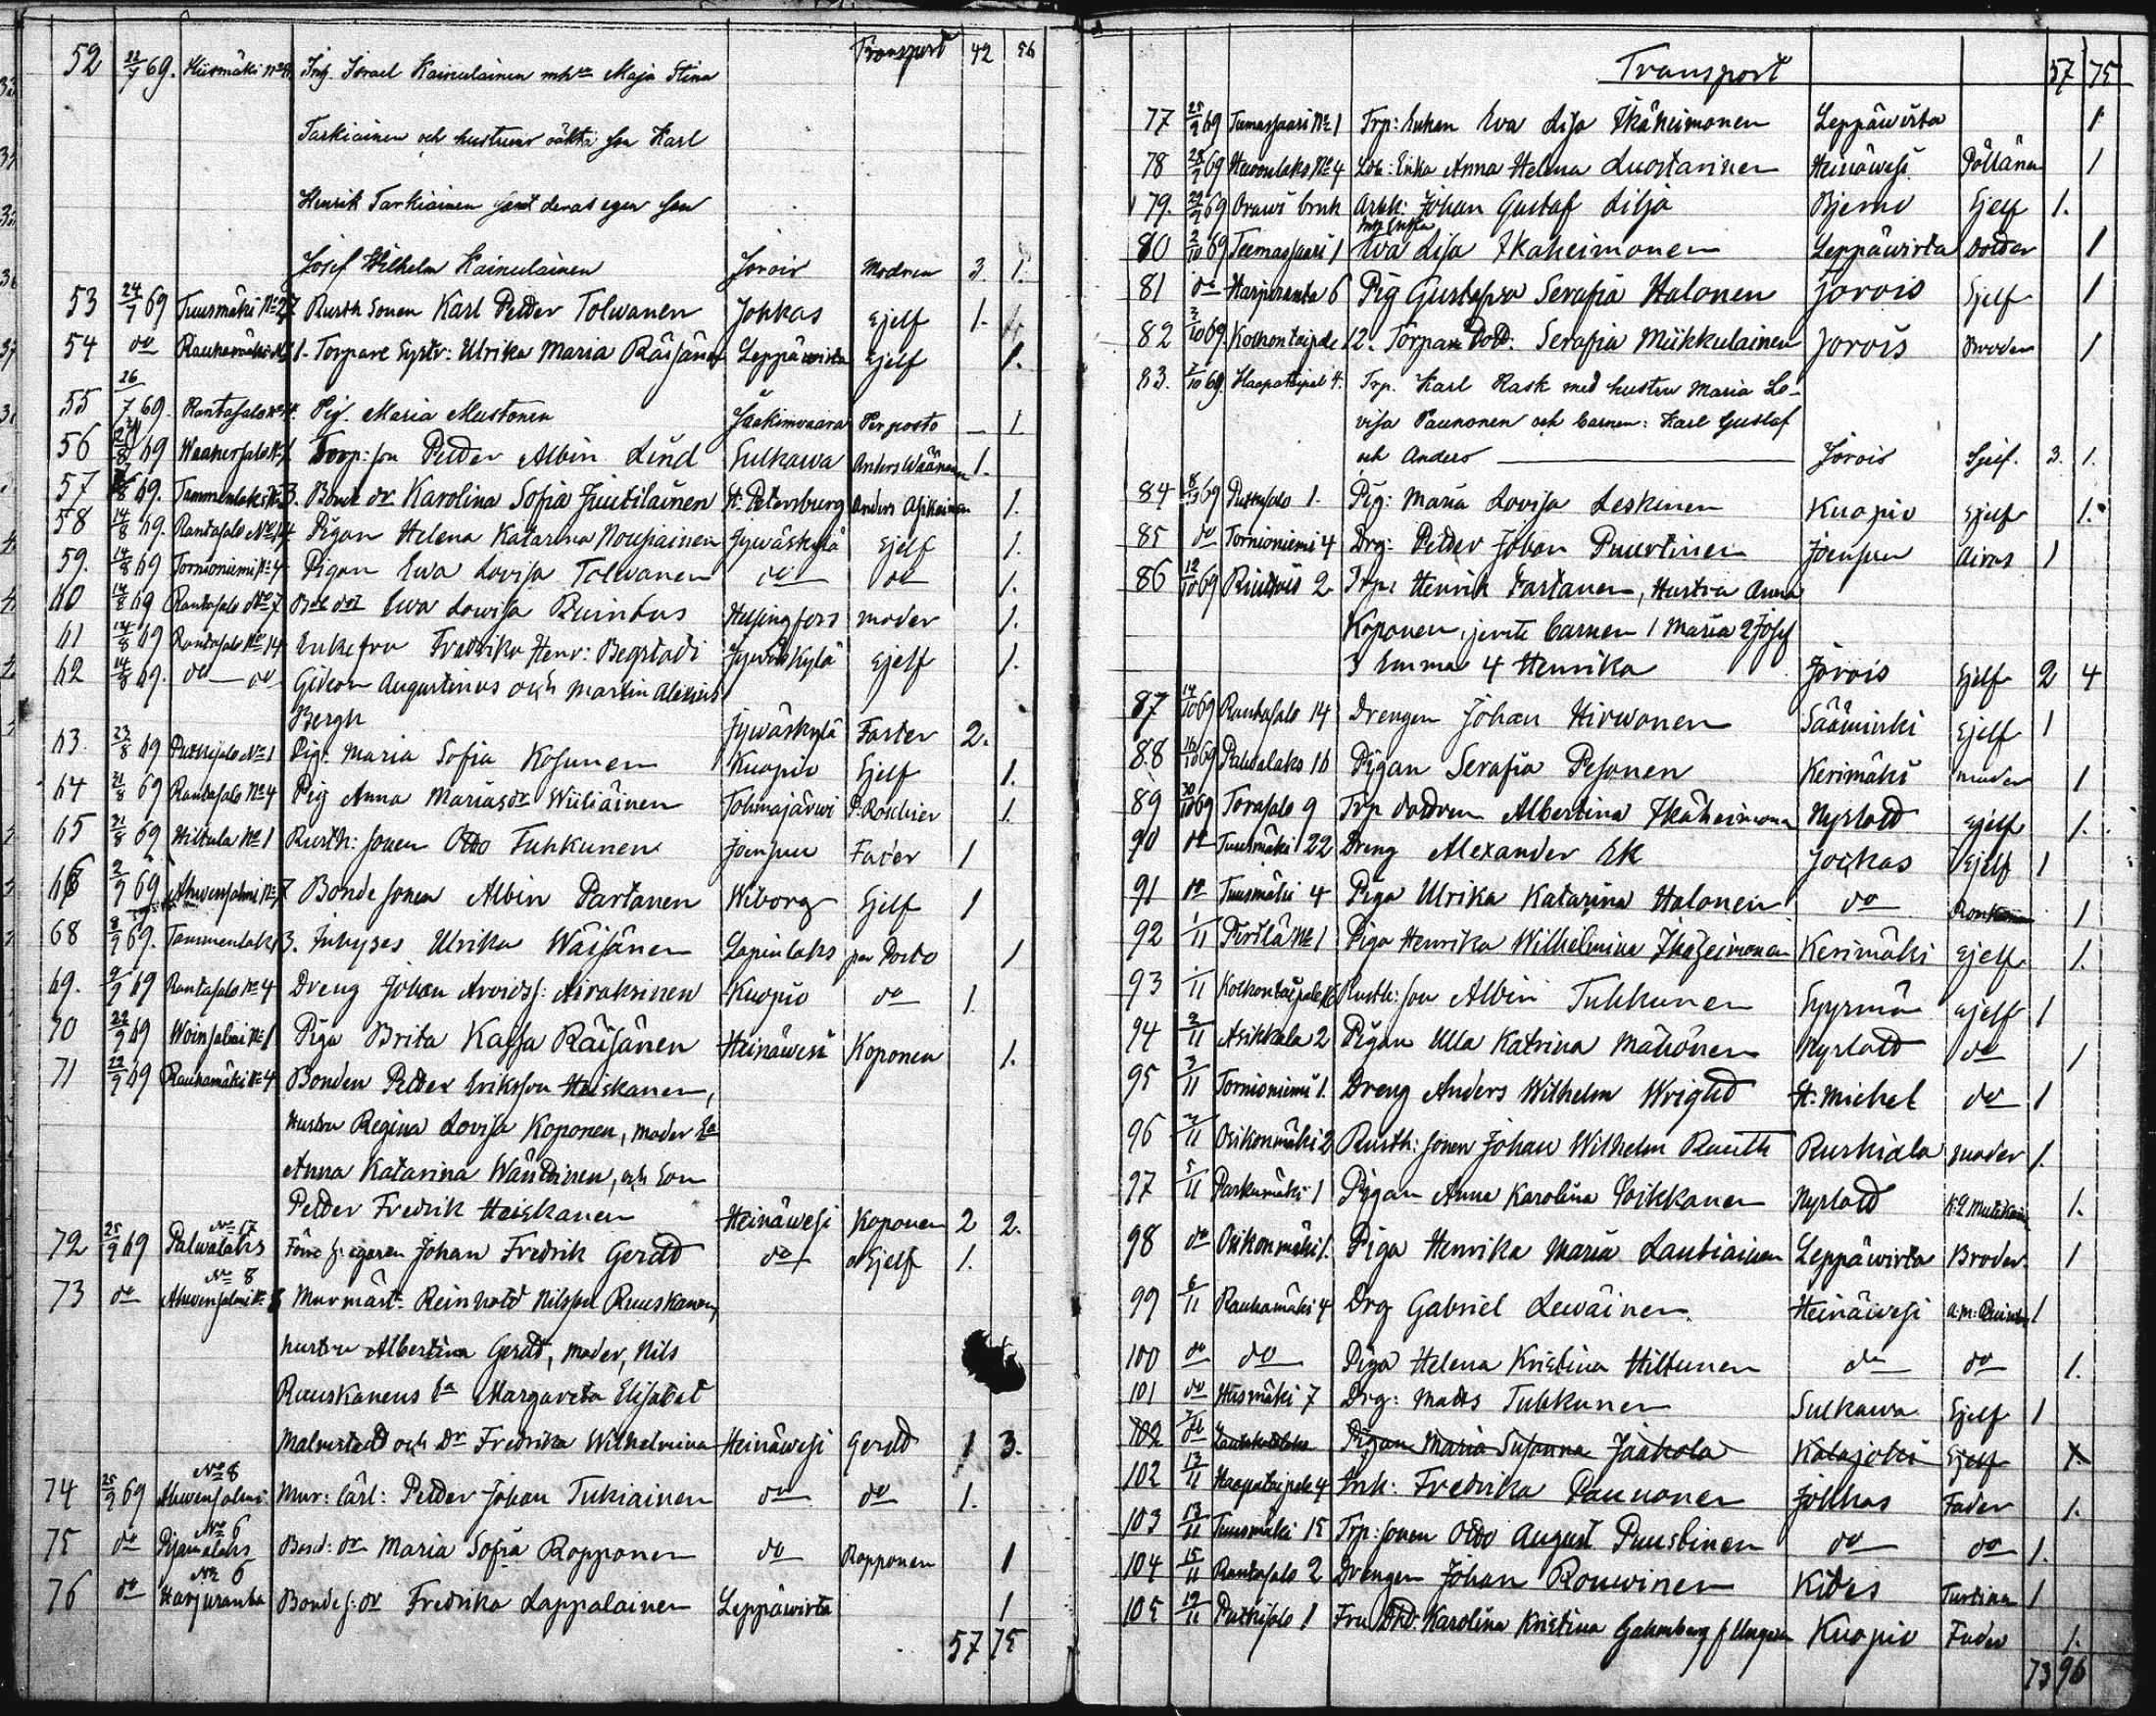 Transport 42 56
52 22/7 69. Hiismäki Inh. Israel Kainulainen m. h. Maja Stina
Tarkiainen och hustruns oäkta son Karl
Henrik Tarkiainen samt deras egen son
Josef Wilhelm Kainulainen Jorois Modren 3. 1.
53 24/7 69 Tuusmäki № 27 Rusth. Sonen Karl Petter Tolwanen Jokkas Sjelf 1.
54 do Rauhamäki 1. Torpare Systr: Ulrika Maria Räisänen Leppäwirta Sjelf 1.
55 26/7 69. Rantasalo № 4. Pig. Maria Mustonen Jaakimvaara Per posto 1.
56 69 Torp: son Petter Albin Lind Sulkawa Anders Wäänänen 1.
57 /8 69. Tammenlaks 3. Bonde dr Karolina Sofia Juutilainen St. Petersburg Anders Asikainen 1.
58 14/8 69. Rantasalo № 14 Pigan Helena Katarina Noupiainen Jyväskylä Sjelf 1.
59. 14/8 69 Tornioniemi № 4 Pigan Ewa Lovisa Tolwanen do do 1.
60 14/8 69 Rantasalo № 7 Ewa Lowisa Helsingfors moder 1.
61 14/8 69 Rantasalo № 14 Enkefru Fredrika Henr: Jywäskylä Sjelf 1.
62 14/8 69. do do Gideon Augustinus och Martin Alexius
Bergh Jywäskylä Faster 2.
63. 23/8 69 Putkisalo № 1 Pig. Maria Sofia Kosunen Kuopio Sjelf 1.
64 31/8 69 Rantasalo № 4 Pig Anna Mariasdr Wiiliäinen Tohmajärwi P. Roschier 1.
65 31/8 69 Hiltula № 1 Rusth: sonen Otto Tuhkunen Joensuu Fader 1
66 2/9 69 Ahwensalmi № 7 Bonde sonen Albin Partanen Wiborg Sjelf 1
68 8/9 69. Tammenlaks 3. Inhyses Ulrika Wäisänen Lapinlaks per Posto 1
69. 9/9 69 Rantasalo № 4 Dreng Johan Arvidss: Airaksinen Kuopio do 1.
70 22/9 69 Woinsalmi № 1 Piga Brita Kajsa Räisänen Heinäwesi Koponen 1.
71 22/9 69 Rauhamäki № 4 Bonden Petter Eriksson Heiskanen,
Hustru Regina Lovisa Koponen, moder Ea
Anna Katarina och Son
Petter Fredrik Heiskanen Heinäwesi Koponen 2 2.
72 25/9 69 Palwalaks № 17 Före s. egaren Johan Fredrik Gerdt do Sjelf 1.
73 do Ahwensalmi № 8 Murmäst: Reinhold Nilsson Ruuskanen,
hustru Albertina Gerdt, moder, Nils
Ruuskanens Ea Margareta Elisabet
Malmstedt och Dr Fredrika Wilhelmina Heinäwesi Gerdt 1 3.
74 25/9 69 Ahwensalmi № 8 Mur: lärl: Petter Johan Tukiainen do do 1.
75 do № 6 Bond: dr Maria Sofia Ropponen do Ropponen 1
76 do Harjuranta № 6 Bonde s: dr Fredrika Lappalainen Leppäwirta 1
57 75
Transport 57 75
77 25/9 69 Tuunassaari № 1 Trp: Enkan Eva Lisa Ikäheimonen Leppäwirta 1
78 28/9 69 Heinonlaks № 4 Enka Anna Helena Luostarinen Heinäwesi Pöllänen 1
79. 29/9 69 Orawi bruk Arbk: Johan Gustaf Lilja Bjerno Sjelf 1.
80 2/10 69 Teemassaari 1 Inh: Enka Ewa Lisa Ikäheimonen Leppäwirta Dotter 1
81 do Harjuranta 6 Pig Gustafva Serafia Halonen Jorois Sjelf 1
82 3/10 69. Kolkontaipale 12. Torpare Dott. Serafia Miikkulainen Jorois Broder 1
83. 7/10 69. Haapataipal 4. Trp. Karl Rask med hustru Maria Lo-
visa Paunonen och barnen: Karl Gustaf
och Anders Jorois Sjelf. 3. 1.
84 8/10 69 Putkisalo 1. Pig: Maria Lovisa Leskinen Kuopio Sjelf 1.
85 do Tornioniemi 4 Drg: Petter Johan Puurtinen Joensuu Airas 1
86 12/10 69 2 Trp: Henrik Partanen, Hustru Anna
Koponen, jemte barnen 1 Maria 2 Josef
3 Emma 4 Henrika Jorois Sjelf 2 4
87 14/10 69 Rantasalo 14 Drengen Johan Hirwonen Sääminki Sjelf 1
88 16/10 69 Palwalaks 16 Pigan Serafia Pesonen Kerimäki moder 1
89 30/10 69 Torasalo 9 Trp dottren Albertina Ikäheimonen Nyslott Sjelf 1.
90 do Tuusmäki 22 Dreng Alexander Ek Jockas Sjelf 1
91 do Tuusmäki 4 Piga Ulrika Katarina Halonen do 1
92 1/11 Pirtlä № 1 Piga Henrika Wilhelmina Ikäheimonen Kerimäki Sjelf 1.
93 1/11 Kolkontaipale 16 Rusth: son Albin Tuhkunen Syysmä Sjelf 1
94 2/11 Asikkala 2 Pigan Ulla Katrina Mähönen Nyslott do 1
95 3/11 Tornioniemi 1. Dreng Anders Wilhelm Wright St. Michel do 1
96 /11 Osikonmäki 2 Rusth: sonen Johan Wilhelm Rauth Ruskiala moder 1.
97 5/11 Parkumäki 1 Pigan Anna Karolina Voikkanen Nyslott 1.
98 do Osikonmäki 1. Piga Henrika Maria Lautiainen Leppäwirta Broder 1
99 6/11 Rauhamäki 4 Drg Gabriel Lewäinen. Heinäwesi 1
100 do do Piga Helena Kristina Hiltunen do do 1.
101 do Hiismäki 7 Drg: Matts Tuhkunen Sulkawa Sjelf 1
102 Pigan Maria Susanna Jaakola Kalajoki Sjelf 1.
102 13/11 Haapataipale 4 Ink: Fredrika Paunonen Jokkas Fader 1.
103 13/11 Tuusmäki 15 Trp: sonen Otto August Puustinen do do 1.
104 15/11 Rantasalo 2 Drengen Johan Rouwinen Kides Turtinen 1
105 19/11 Putkisalo 1 Fru Karolina Kristina Kuopio Fader 1.
73 96